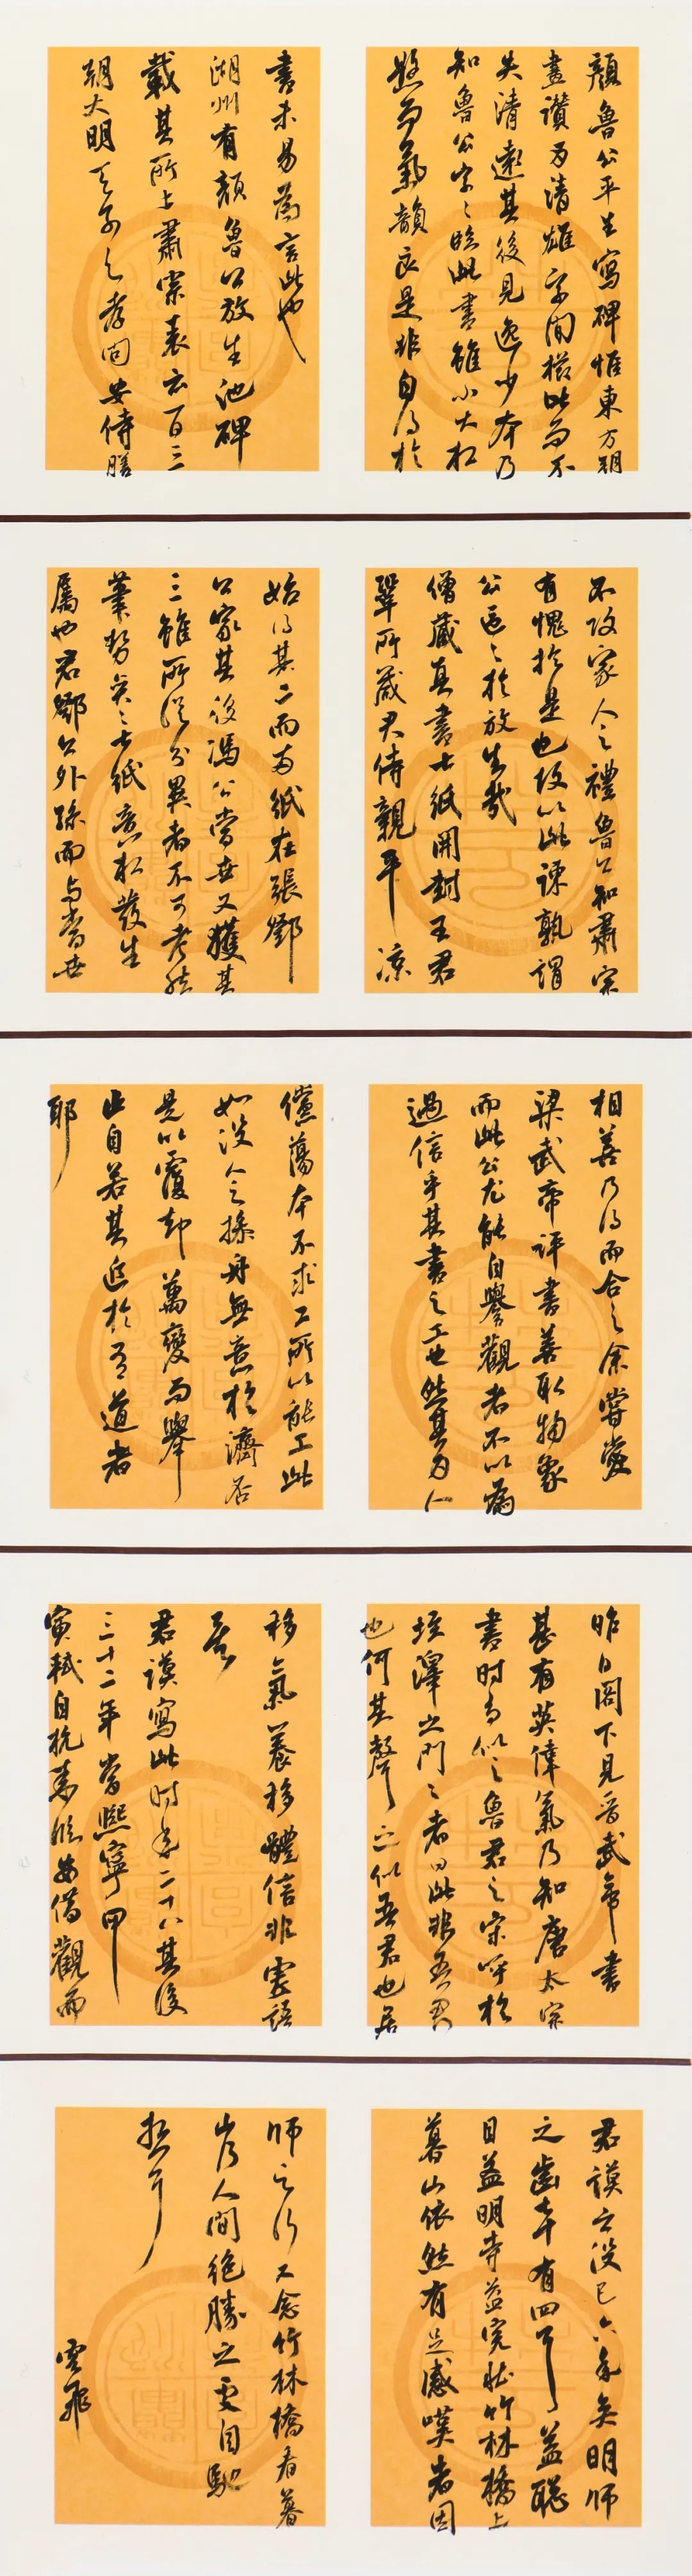 顏魯公平生寫碑惟東方朔
畫讚為清雄字間櫛比而不
失清遠其後見逸少本乃
知魯公字字臨此書雖小大相
懸而氣韻良是非自得於
書未易為言此也
湖州有顏魯公放生池碑
載其所上肅宗表云一日三
朝大明天子之孝問安侍膳
不改家人之禮魯公知肅宗
有愧於是也故以此諫孰謂
公區區於放生哉
僧藏真書七紙開封王君
鞏所藏君侍親平涼
始得其二而兩紙在張鄧
公家其後馮公當世又獲其
三雖所從分異者不可考然
筆勢奕奕七紙意相發生
屬也君鄧公外孫而與當世
相善乃得而合之余嘗愛
梁武帝評書善取物象
而此公尤能自譽觀者不以為
過信乎其書之工也然其為人
儻蕩本不求工所以能工此
如沒人之操舟無意於濟否
是以覆却萬變而舉
止自若其近於有道者
耶
昨日閣下見晉武帝書
甚有英偉氣乃知唐太宗
書時有似之魯君之宋呼於
垤澤之門門者曰此非吾君
也何其聲之似吾君也居
移氣養移體信非虛語
矣
君謨寫此時年二十八其後
三十二年當熙寧甲
寅軾自杭來臨安借觀而
君謨之沒已六年矣明師
之齒七十有四耳益聰
目益明寺益完壯竹林橋上
暮山依然有足感嘆者因
師之行又念竹林橋看暮
山乃人間絕勝之處自馳
想耳
雲飛